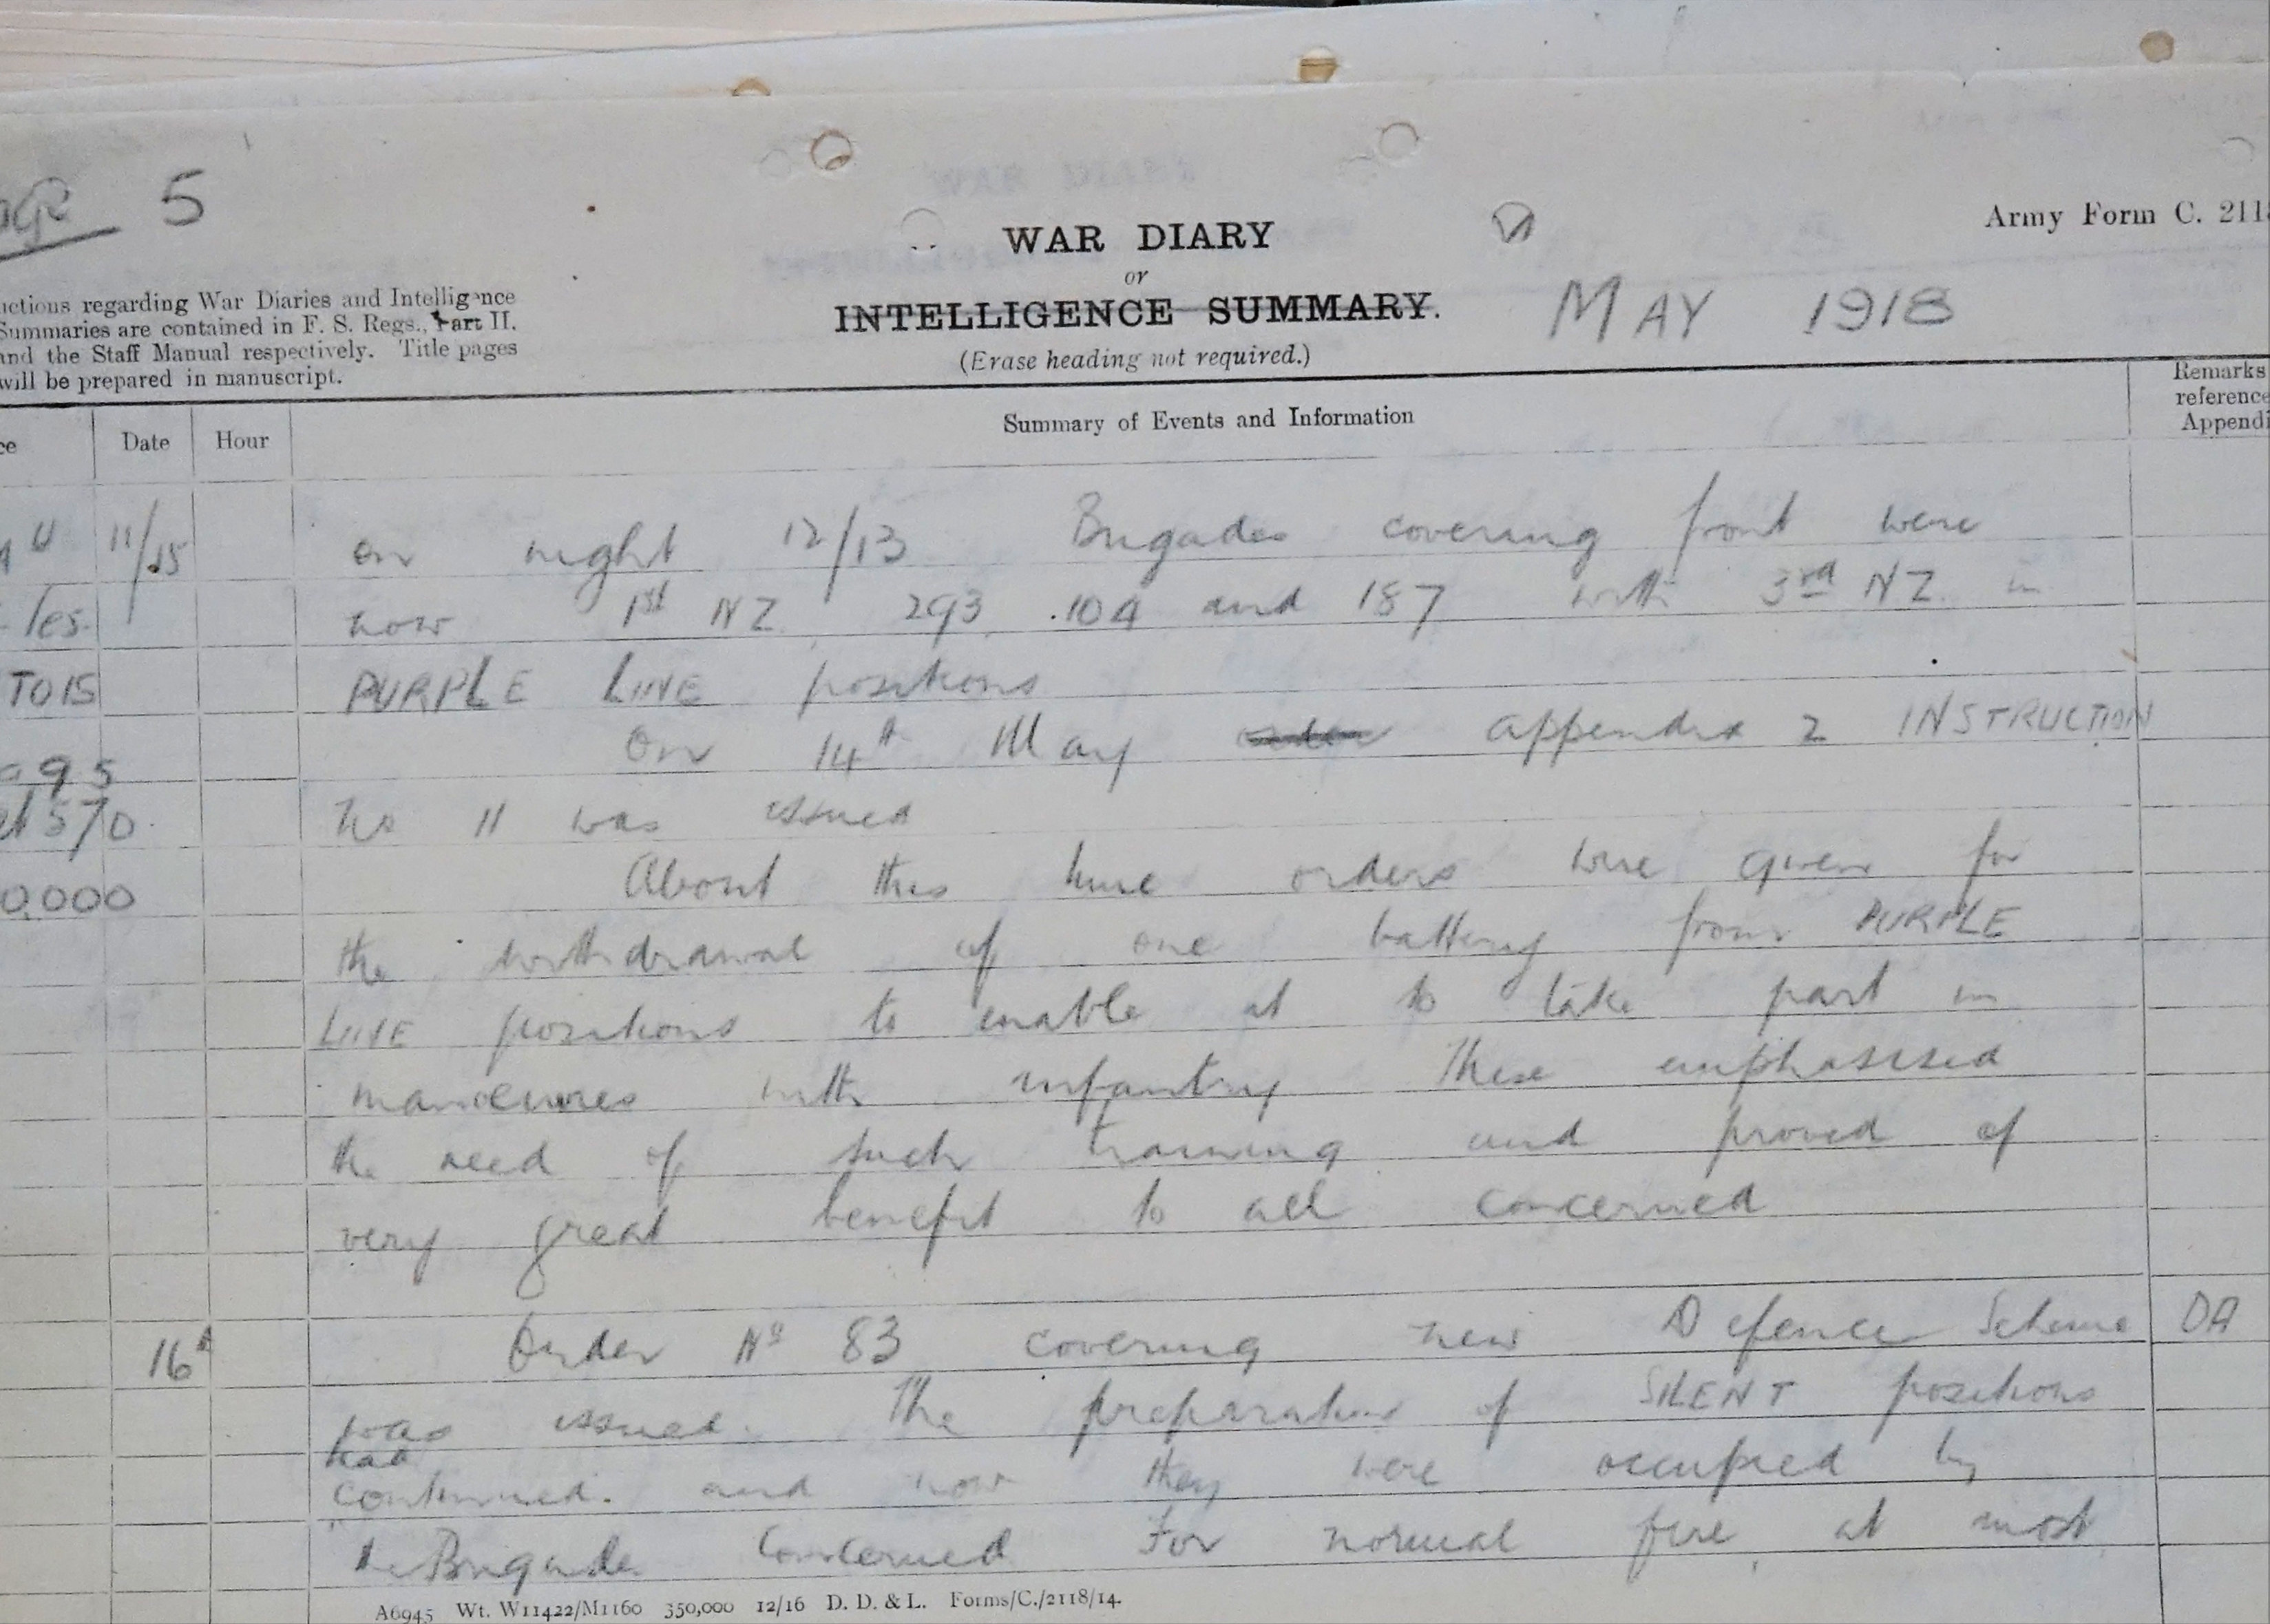 age 5
Army Form C. 211
WAR DIARY
or
INTELLIGENCE SUMMARY.
(Erase heading not required.)
MAY 1918
uctions regarding War Diaries and Intelligence
Summaries are contained in F. S. Regs., Part II.
and the Staff Manual respectively. Title pages
will be prepared in manuscript.
ce
Date
Hour
Summary of Events and Information
Remarks
reference
Appendi
11/15
TO 15
995
570
0,000
on night 12/13 Brigades covering front were
now 1st NZ, 293, 104 and 187 with 3rd NZ in
PURPLE LINE positions
On 14th May appendix 2 INSTRUCTION
No 11 was issued
About this time orders were given for
the withdrawal of one battery from PURPLE
LINE positions to enable it to take part in
manoeuvres with infantry These emphasised
the need of such training and proved of
very great benefit to all concerned
16th
Order No 83 covering new Defence Scheme
DA
was issued. The preparation of SILENT positions
had
continued. and now they were occupied by
the Brigade concerned For normal fire, at most,
A6945 Wt. W11422/M1160 350,000 12/16 D. D. & L. Forms/C./2118/14.